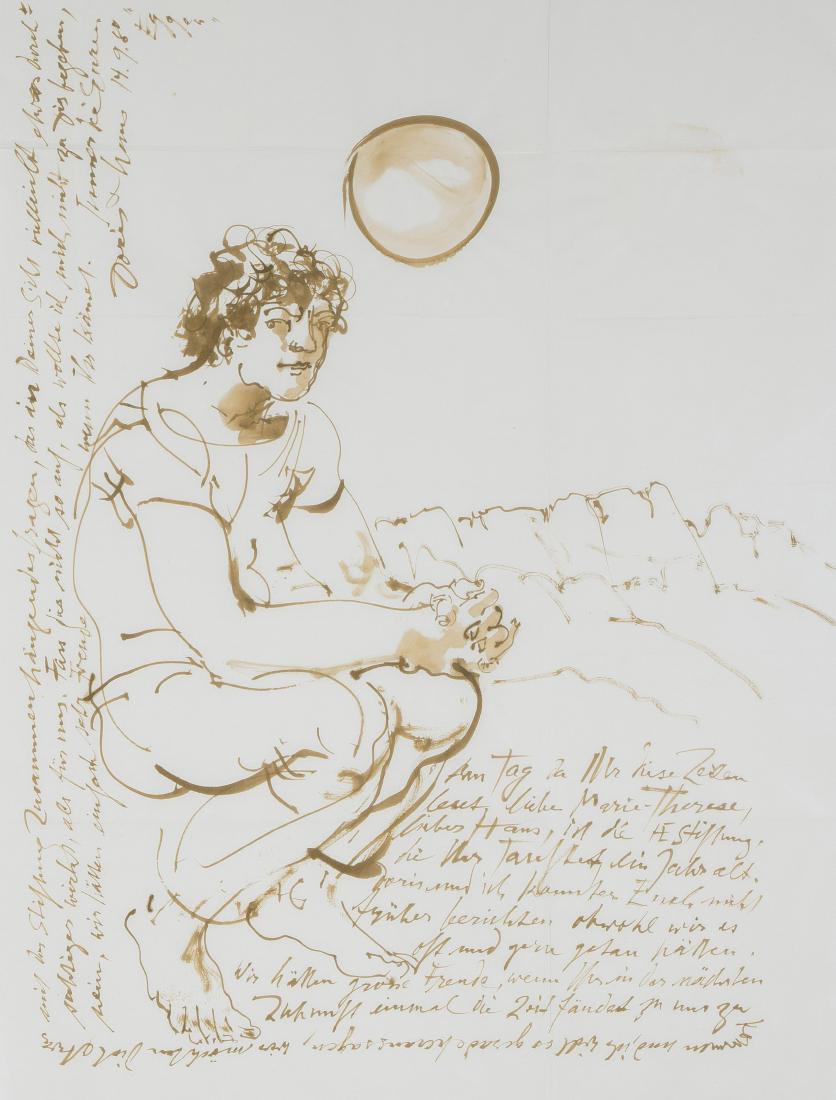 Am Tag da Ihr diese Zeilen
lest, liebe Marie-Therese,
lieber Hans, ist die Stiftung,
die Ihr ein Jahr alt.
Doris und ich konnten Euch nicht
früher berichten obwohl wir es
oft und gern getan hätten.
Wir hätten grosse Freude, wenn Ihr in der nächsten
Zukunft einmal die Zeit fändet zu uns zu
kommen und, ich will so geradeheraussagen, wir möchten Dich etwas
mit der Stiftung Zusammenhängendes fragen, das in Deiner Sicht vielleicht etwas durch=
sichtiger wirkt, als für uns. Fass es nicht so auf, als wollte ich mich nicht zu Dir begeben,
nein, wir hätten einfach sehr Freude wenn Ihr kämet. Immer die Euren
Doris + Hans 14.9.80